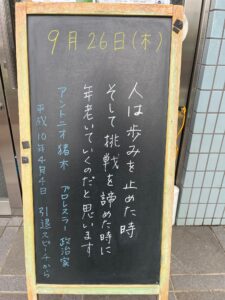 9月26日(木)
人は歩みを止めた時
そして挑戦を諦めた時に
年老いていくのだと思います
アントニオ猪木 プロレスラー 政治家
平成10年4月4日 引退スピーチから